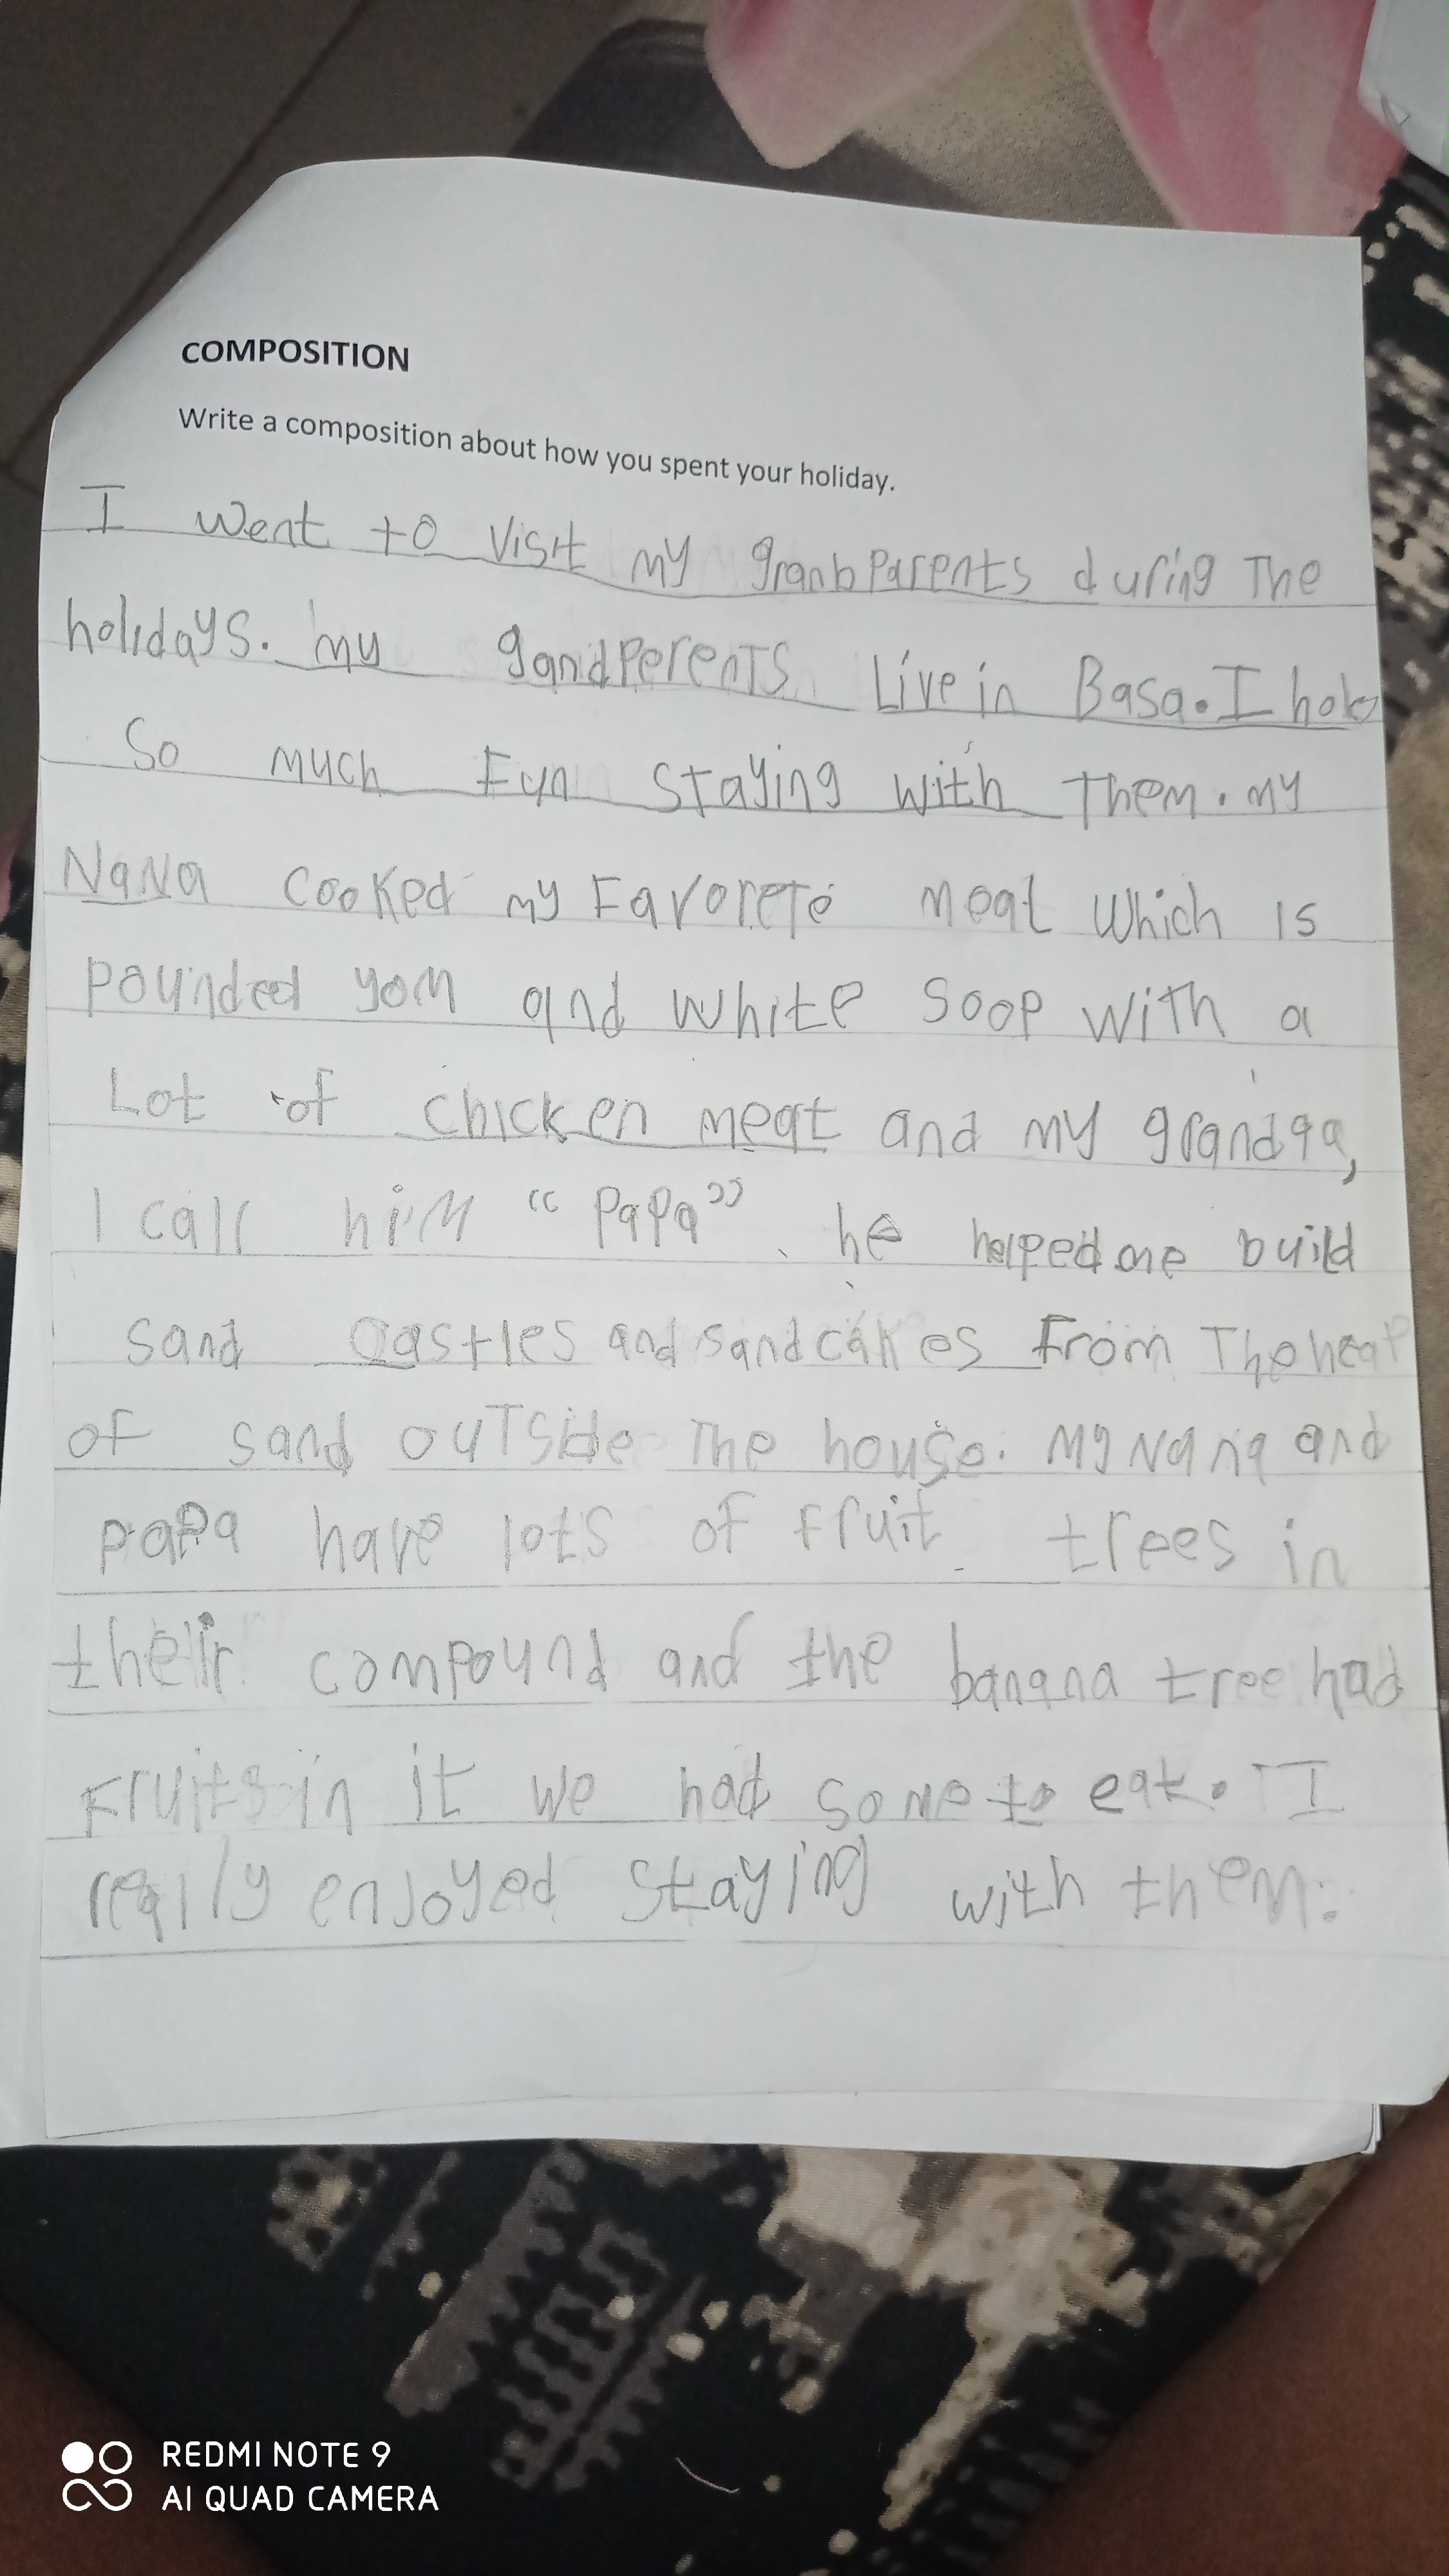 COMPOSITION
Write a composition about how you spent your holiday.
I went to visit my granbparents during The
holidays. my gandperents Live in Basa. I hab
So much Fun staying with Them. my
NaNa cooked my Favorete meat which is
pounded yom and white soop with a
Lot of chicken meat and my grandqa,
I call him "papa". he helped me build
sand castles and sand cakes From The heap
of sand outside The house. My Nana and
papa have lots of fruit trees in
their compound and the banana tree had
Fruits in it we had some to eat. I
really enjoyed staying with them.
REDMI NOTE 9
AI QUAD CAMERA